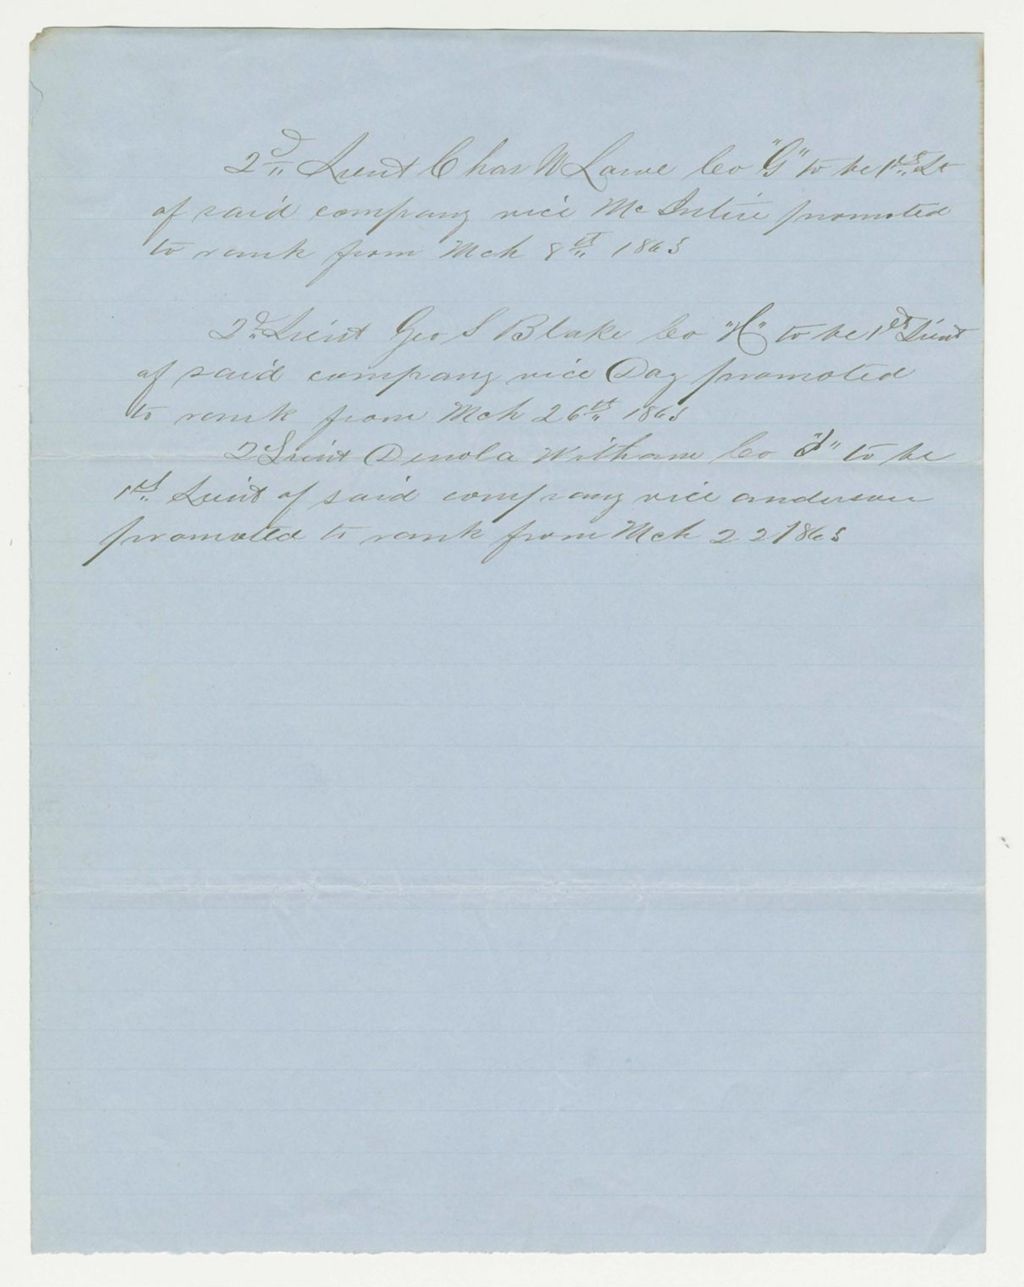 2d Lieut Chas W Lowe Co "G" to be 1st Lt
of said company vice McIntire promoted
to rank from Mch 8th 1863
2d Lieut Geo S Blake Co "H" to be 1st Lieut
of said company vice Day promoted
to rank from Mch 26th 1863
2 Lieut Witham Co to be
1st Lieut of said company vice anderson
promoted to rank from Mch 22 1863